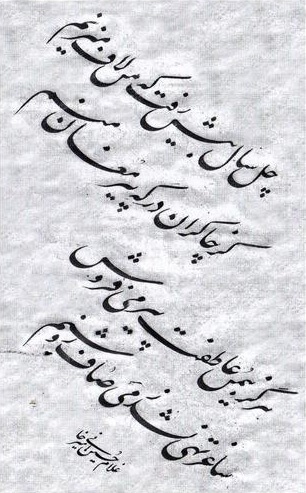 چل سال بیش رفت که من لاف میزنم
کز چاکران درگه پیر مغان منم
هرگز بیمن عاطفت پیر می فروش
ساغر تهی نشد ز می صاف روشنم
غلامحسین امیرخانی